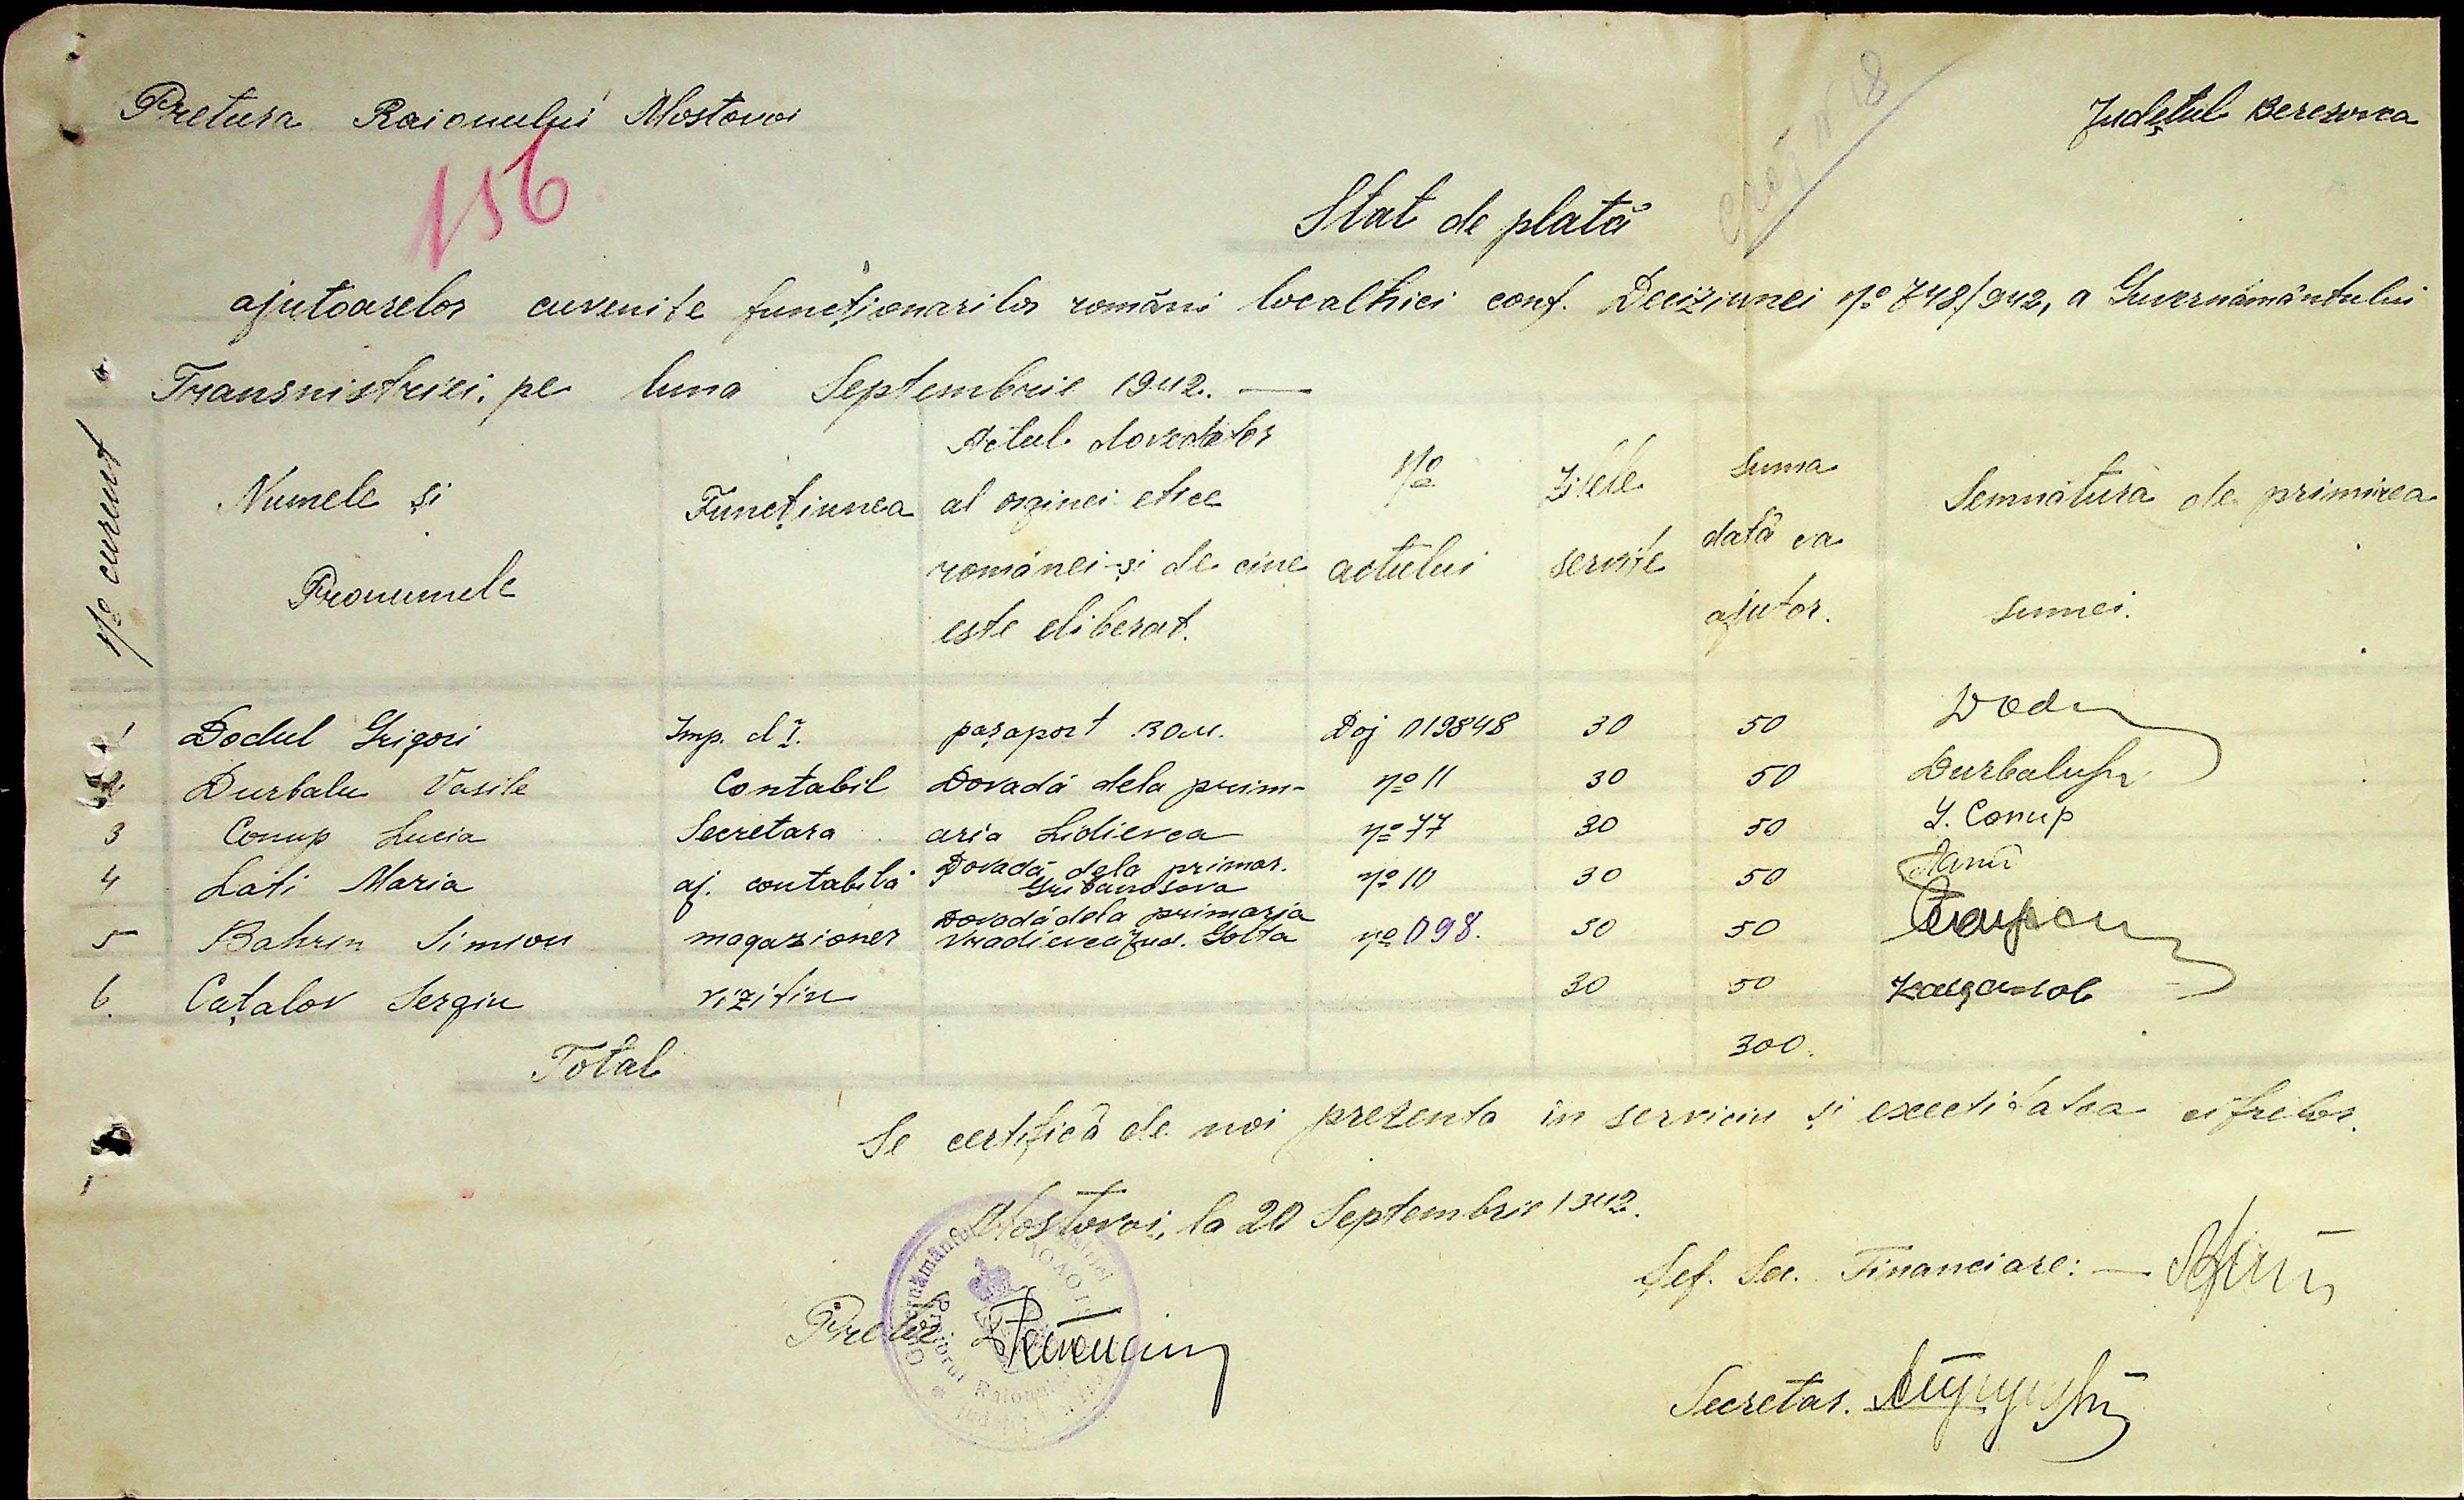 Pretura Raionului Mostovoi
Județul Berezovca
156
Stat de plată
ajutoarelor cuvenite funcționarilor români localnici conf. Deciziunei No 748/942, a Guvernământului
Transnistriei, pe luna Septembrie 1942. —
No curent
Numele și
Pronumele
Funcțiunea
Actul dovedetor
al orginei etice
românei și de cine
este eliberat.
No
actului
Zilele
servite
Suma
dată ca
ajutor.
Semnătura de primirea
sumei.
1 Dodul Grigori Imp. d I. pașaport rom. Doj 019848 30 50 Dodu
2 Durbalu Vasile Contabil Dovadă dela prim- No 11 30 50
3 Conup Lucia Secretara aria Lidievca No 77 30 50 L. Conup
4 Lati Maria aj. contabilă Dovadă dela primar. No 10 30 50
5 Bahrin Simion magazioner Dovadă dela primaria
Vradievca Jud. Golta No 098. 30 50
6. Cațalov Sergiu vizitiu 30 50 Кацалов
Total 300.
Se certifică de noi prezenta în serviciu și exectitatea cifrelor.
Mostovoi, la 20 Septembrie 1942.
Pretor
Guvernământul
Pretorul Raionului
Șef. Sec. Financiare: —
Secretar.